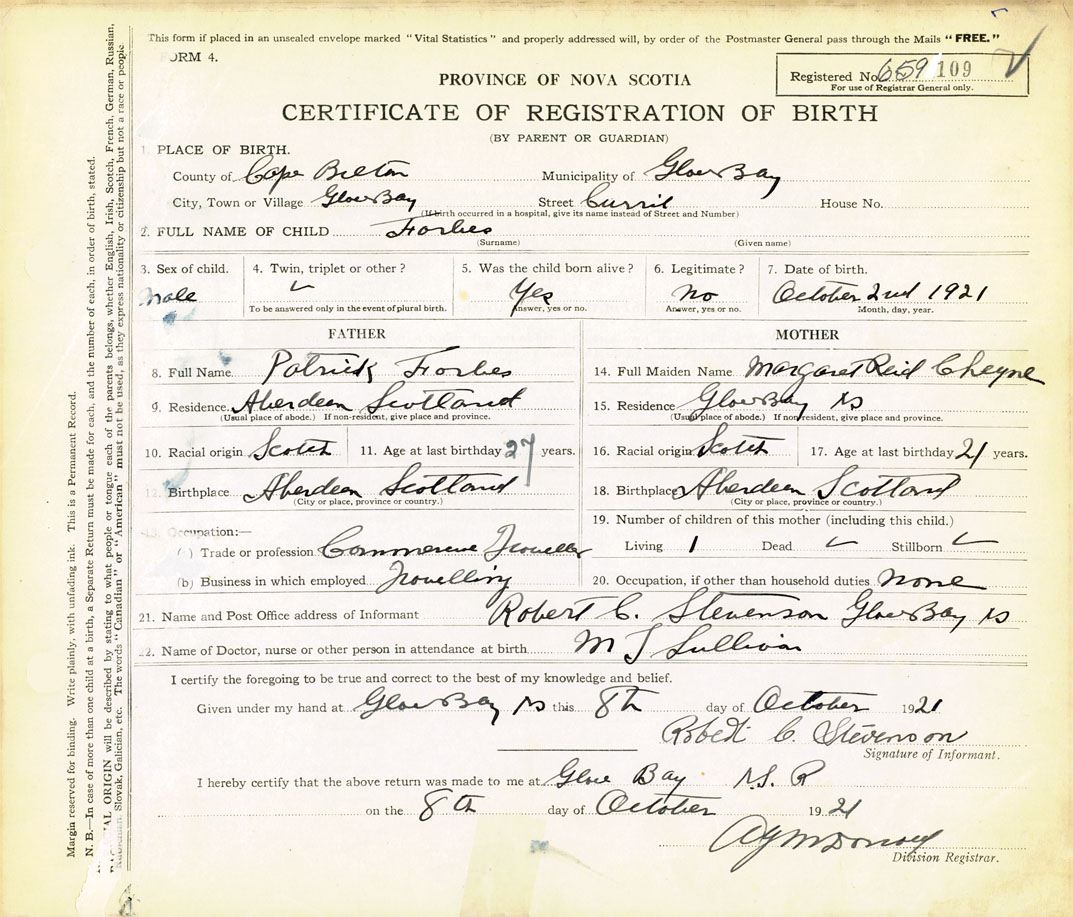 This form if placed in an unsealed envelope marked "Vital Statistics" and properly addressed will, by order of the Postmaster General pass through the Mails "FREE."
FORM 4.
Registered No. 659 109
For use of Registrar General only.
PROVINCE OF NOVA SCOTIA
CERTIFICATE OF REGISTRATION OF BIRTH
(BY PARENT OR GUARDIAN)
1. PLACE OF BIRTH.
County of Cape Breton Municipality of Glace Bay
City, Town or Village Glace Bay Street House No.
(If birth occurred in a hospital, give its name instead of Street and Number)
2. FULL NAME OF CHILD Forbes
(Surname) (Given name)
3. Sex of child. 4. Twin, triplet or other? 5. Was the child born alive? 6. Legitimate? 7. Date of birth.
Male Yes No October 2nd 1921
To be answered only in the event of plural birth. Answer, yes or no. Answer, yes or no. Month, day, year.
FATHER MOTHER
8. Full Name Patrick Forbes 14. Full Maiden Name Margaret Reid Cheyne
9. Residence Aberdeen Scotland 15. Residence Glace Bay NS
(Usual place of abode.) If non-resident, give place and province. (Usual place of abode.) If non-resident, give place and province.
10. Racial origin Scotch 11. Age at last birthday 27 years. 16. Racial origin Scotch 17. Age at last birthday 21 years.
12. Birthplace Aberdeen Scotland 18. Birthplace Aberdeen Scotland
(City or place, province or country.) (City or place, province or country.)
13. Occupation:— 19. Number of children of this mother (including this child.)
(a) Trade or profession Traveller Living 1 Dead Stillborn
(b) Business in which employed Travelling 20. Occupation, if other than household duties none
21. Name and Post Office address of Informant Robert C. Stevenson Glace Bay NS
22. Name of Doctor, nurse or other person in attendance at birth M J Sullivan
I certify the foregoing to be true and correct to the best of my knowledge and belief.
Given under my hand at Glace Bay NS this 8th day of October 1921
Robert C. Stevenson
Signature of Informant.
I hereby certify that the above return was made to me at Glace Bay N.S.
on the 8th day of October 1921
Division Registrar.
Margin reserved for binding. Write plainly, with unfading ink. This is a Permanent Record.
N. B.—In case of more than one child at a birth, a Separate Return must be made for each, and the number of each, in order of birth, stated.
ORIGIN will be described by stating to what people or tongue each of the parents belongs, whether English, Irish, Scotch, French, German, Russian,
Slovak, Galician, etc. The words "Canadian" or "American" must not be used, as they express nationality or citizenship but not a race or people.